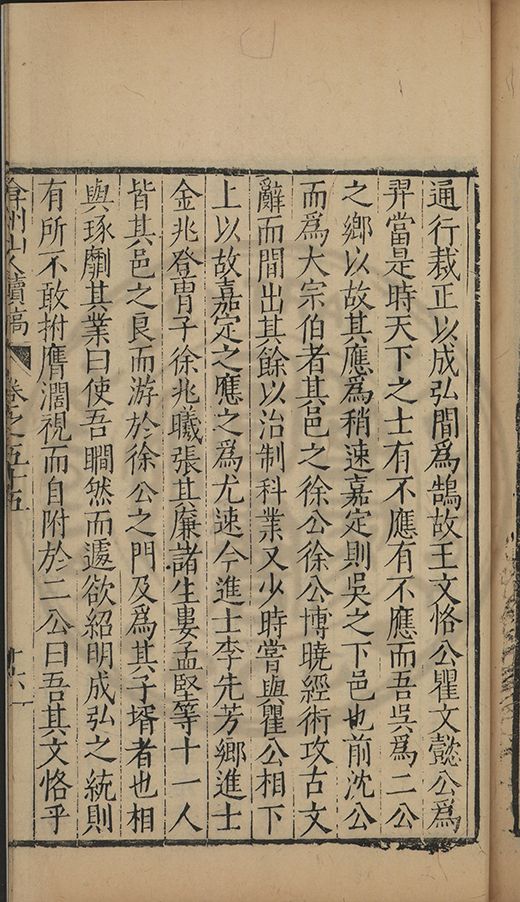 通行裁正以成弘間爲鵠故王文恪公瞿文懿公爲
羿當是時天下之士有不應有不應而吾吳爲二公
之鄉以故其應爲稍速嘉定則吳之下邑也前沈公
而爲大宗伯者其邑之徐公徐公博曉經術攻古文
辭而間出其餘以治制科業又少時嘗與瞿公相下
上以故嘉定之應之爲尤速今進士李先芳鄉進士
金兆登曹子徐兆曦張其廉諸生婁孟堅等十一人
皆其邑之良而游於徐公之門及爲其子壻者也相
與琢劘其業曰使吾瞷然而遽欲紹明成弘之統則
有所不敢拊膺濶視而自附於二公曰吾其文恪乎
弇州山人續稿 卷之五十五 十六